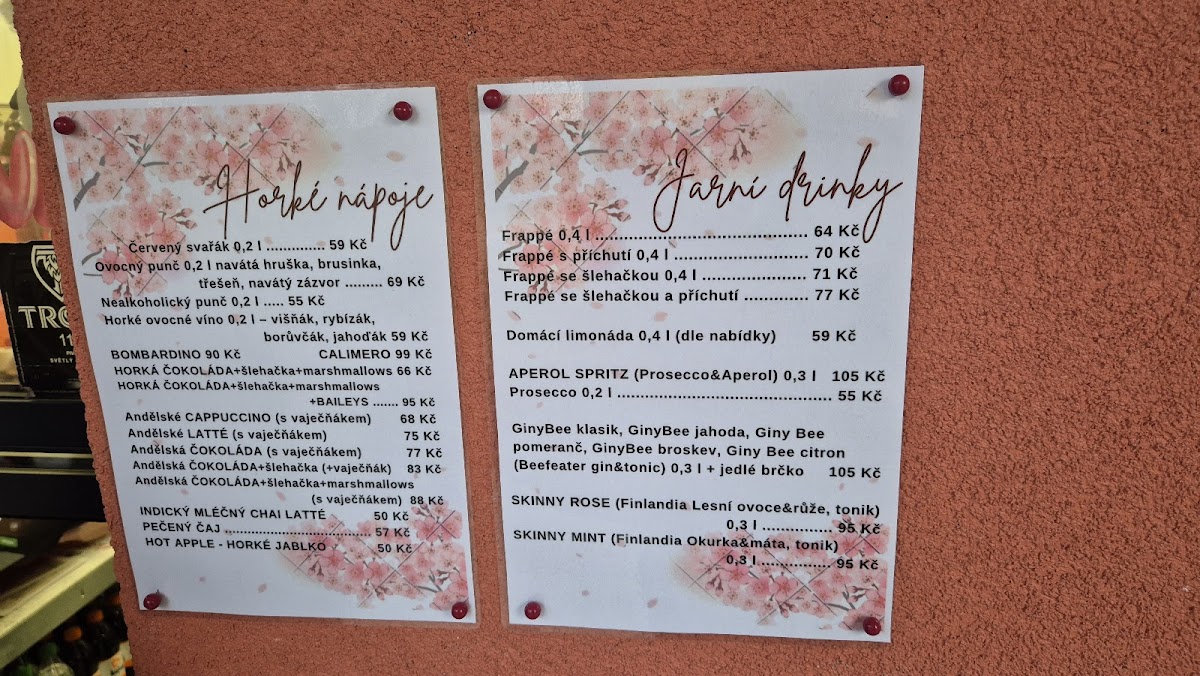 Horké nápoje
Červený svařák 0,2 l ............. 59 Kč
Ovocný punč 0,2 l navátá hruška, brusinka,
třešeň, navátý zázvor ......... 69 Kč
Nealkoholický punč 0,2 l ..... 55 Kč
Horké ovocné víno 0,2 l – višňák, rybízák,
borůvčák, jahoďák 59 Kč
BOMBARDINO 90 Kč CALIMERO 99 Kč
HORKÁ ČOKOLÁDA+šlehačka+marshmallows 66 Kč
HORKÁ ČOKOLÁDA+šlehačka+marshmallows
+BAILEYS ....... 95 Kč
Andělské CAPPUCCINO (s vaječňákem) 68 Kč
Andělské LATTÉ (s vaječňákem) 75 Kč
Andělská ČOKOLÁDA (s vaječňákem) 77 Kč
Andělská ČOKOLÁDA+šlehačka (+vaječňák) 83 Kč
Andělská ČOKOLÁDA+šlehačka+marshmallows
(s vaječňákem) 88 Kč
INDICKÝ MLÉČNÝ CHAI LATTÉ 50 Kč
PEČENÝ ČAJ ................................... 57 Kč
HOT APPLE - HORKÉ JABLKO 50 Kč
Jarní drinky
Frappé 0,4 l ............................................ 64 Kč
Frappé s příchutí 0,4 l ............................ 70 Kč
Frappé se šlehačkou 0,4 l ...................... 71 Kč
Frappé se šlehačkou a příchutí ............. 77 Kč
Domácí limonáda 0,4 l (dle nabídky) 59 Kč
APEROL SPRITZ (Prosecco&Aperol) 0,3 l 105 Kč
Prosecco 0,2 l ............................................. 55 Kč
GinyBee klasik, GinyBee jahoda, Giny Bee
pomeranč, GinyBee broskev, Giny Bee citron
(Beefeater gin&tonic) 0,3 l + jedlé brčko 105 Kč
SKINNY ROSE (Finlandia Lesní ovoce&růže, tonik)
0,3 l ............... 95 Kč
SKINNY MINT (Finlandia Okurka&máta, tonik)
0,3 l ............... 95 Kč